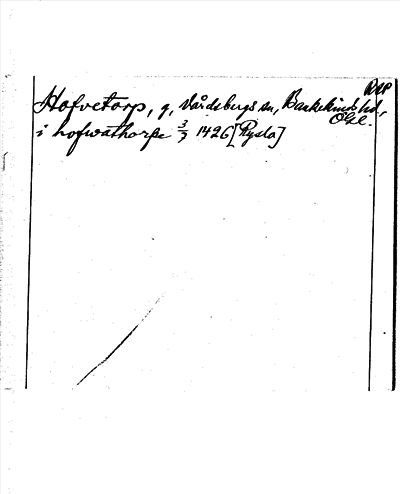 DMP
Hofvetorp, g, Vårdsbergs sn, Bankekinds hd,
Ögl.
i hofwathorpe 3/7 1426 [Rysla]